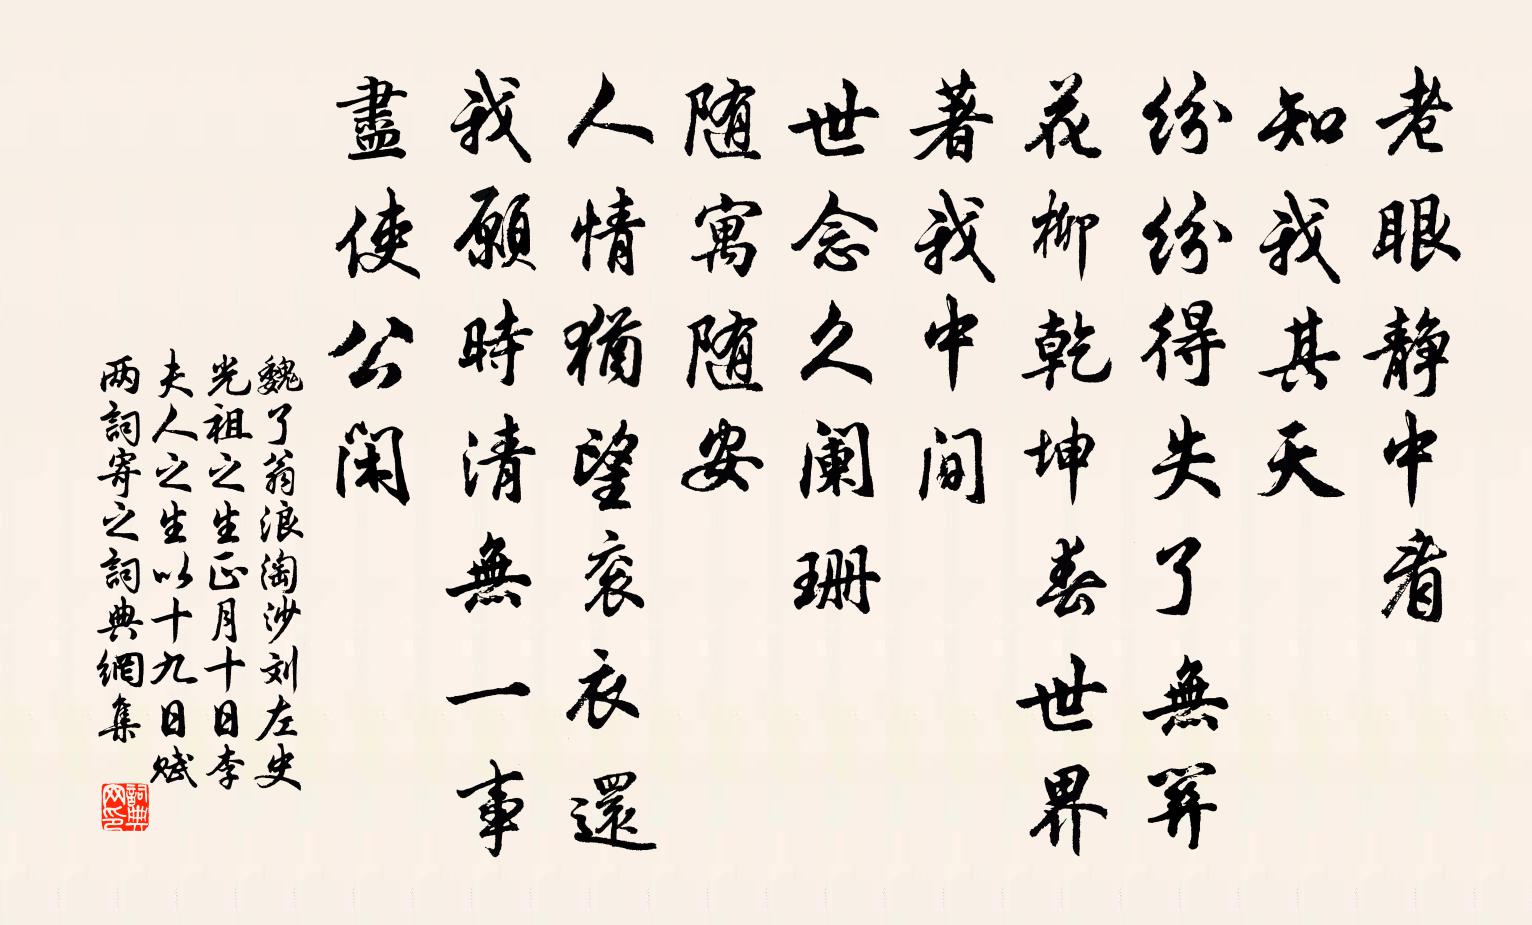 老眼静中看
知我其天
纷纷得失了無筭
花柳乾坤春世界
著我中间
世念久阑珊
随寓随安
人情猶望衮衣還
我願時清無一事
盡使公闲
魏了翁浪淘沙刘左史
光祖之生正月十日李
夫人之生以十九日赋
两詞寄之詞典網集
詞典
网印